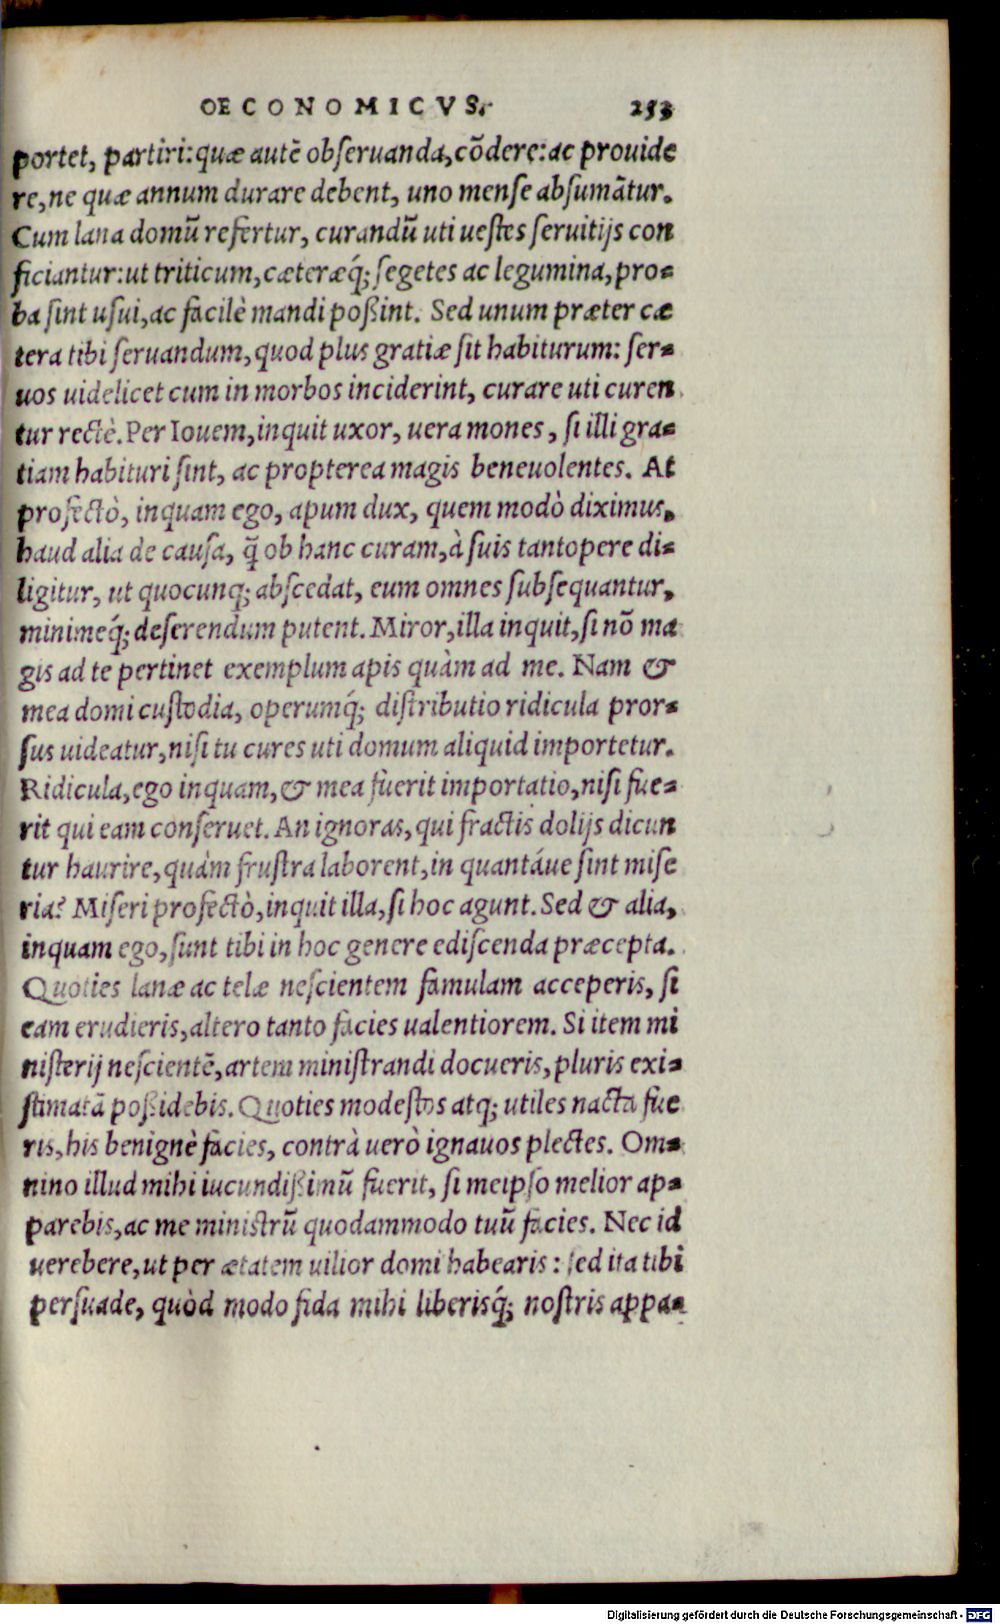 OECONOMICVS. 253
portet, partiri: quæ autē obſeruanda, cōdere: ac prouide
re, ne quæ annum durare debent, uno menſe abſumātur.
Cum lana domū refertur, curandū uti ueſtes ſeruitijs con
ficiantur: ut triticum, cæteræq́; ſegetes ac legumina, pro=
ba ſint uſui, ac facilè mandi poßint. Sed unum præter cæ
tera tibi ſeruandum, quod plus gratiæ ſit habiturum: ſer=
uos uidelicet cum in morbos inciderint, curare uti curen
tur rectè. Per Iouem, inquit uxor, uera mones, ſi illi gra=
tiam habituri ſint, ac propterea magis beneuolentes. At
profectò, inquam ego, apum dux, quem modò diximus,
haud alia de cauſa, q̃ ob hanc curam, à ſuis tantopere di=
ligitur, ut quocunq; abſcedat, eum omnes ſubſequantur,
minimeq́; deſerendum putent. Miror, illa inquit, ſi nō ma
gis ad te pertinet exemplum apis quàm ad me. Nam &
mea domi cuſtodia, operumq́; diſtributio ridicula pror=
ſus uideatur, niſi tu cures uti domum aliquid importetur.
Ridicula, ego inquam, & mea fuerit importatio, niſi fue=
rit qui eam conſeruet. An ignoras, qui fractis dolijs dicun
tur haurire, quàm fruſtra laborent, in quantáue ſint miſe
ria? Miſeri profectò, inquit illa, ſi hoc agunt. Sed & alia,
inquam ego, ſunt tibi in hoc genere ediſcenda præcepta.
Quoties lanæ ac telæ neſcientem famulam acceperis, ſi
eam erudieris, altero tanto facies ualentiorem. Si item mi
niſterij neſcientē, artem miniſtrandi docueris, pluris exi=
ſtimatā poßidebis. Quoties modeſtos atq; utiles nacta fue
ris, his benignè facies, contrà uerò ignauos plectes. Om=
nino illud mihi iucundißimū fuerit, ſi meipſo melior ap=
parebis, ac me miniſtrū quodammodo tuū facies. Nec id
uerebere, ut per ætatem uilior domi habearis: ſed ita tibi
perſuade, quòd modo fida mihi liberisq́; noſtris appa=
Digitalisierung gefördert durch die Deutsche Forschungsgemeinschaft - DFG